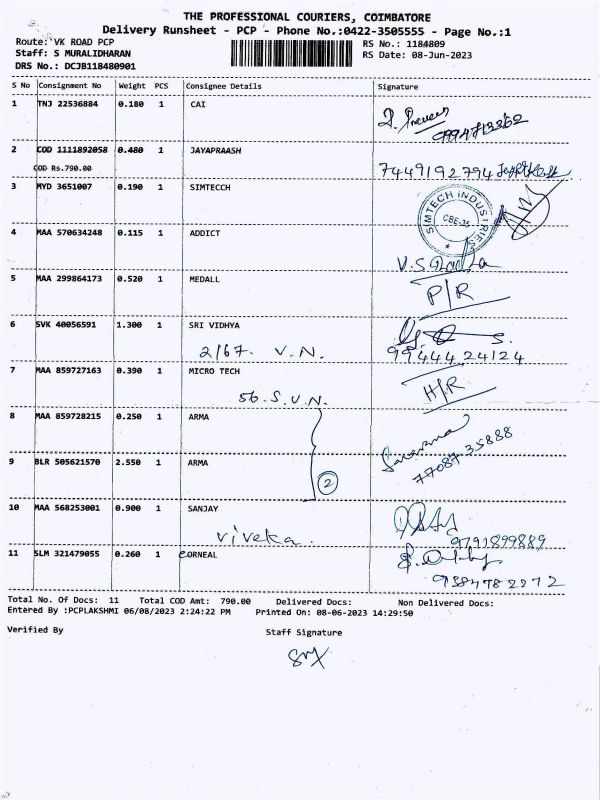 THE PROFESSIONAL COURIERS, COIMBATORE
Delivery Runsheet - PCP - Phone No.:0422-3505555 - Page No.:1
Route: VK ROAD PCP RS No.: 1184809
Staff: S MURALIDHARAN RS Date: 08-Jun-2023
DRS No.: DCJB118480901
S No Consignment No Weight PCS Consignee Details Signature
1 TNJ 22536884 0.180 1 CAI
2 COD 1111892058 0.480 1 JAYAPRAASH
COD Rs.790.00 7449192794
3 MYD 3651007 0.190 1 SIMTECCH
SIMTECH INDUSTRIES
CBE-35
4 MAA 570634248 0.115 1 ADDICT
5 MAA 299864173 0.520 1 MEDALL
P/R
6 SVK 40056591 1.300 1 SRI VIDHYA
2/67. V.N. 9944424124
7 MAA 859727163 0.390 1 MICRO TECH
56.S.V.N. H/R
8 MAA 859728215 0.250 1 ARMA
77087 35888
9 BLR 505621570 2.550 1 ARMA
2
10 MAA 568253001 0.900 1 SANJAY
viveka. 9791899889
11 SLM 321479055 0.260 1 CORNEAL
Total No. Of Docs: 11 Total COD Amt: 790.00 Delivered Docs: Non Delivered Docs:
Entered By :PCPLAKSHMI 06/08/2023 2:24:22 PM Printed On: 08-06-2023 14:29:50
Verified By Staff Signature